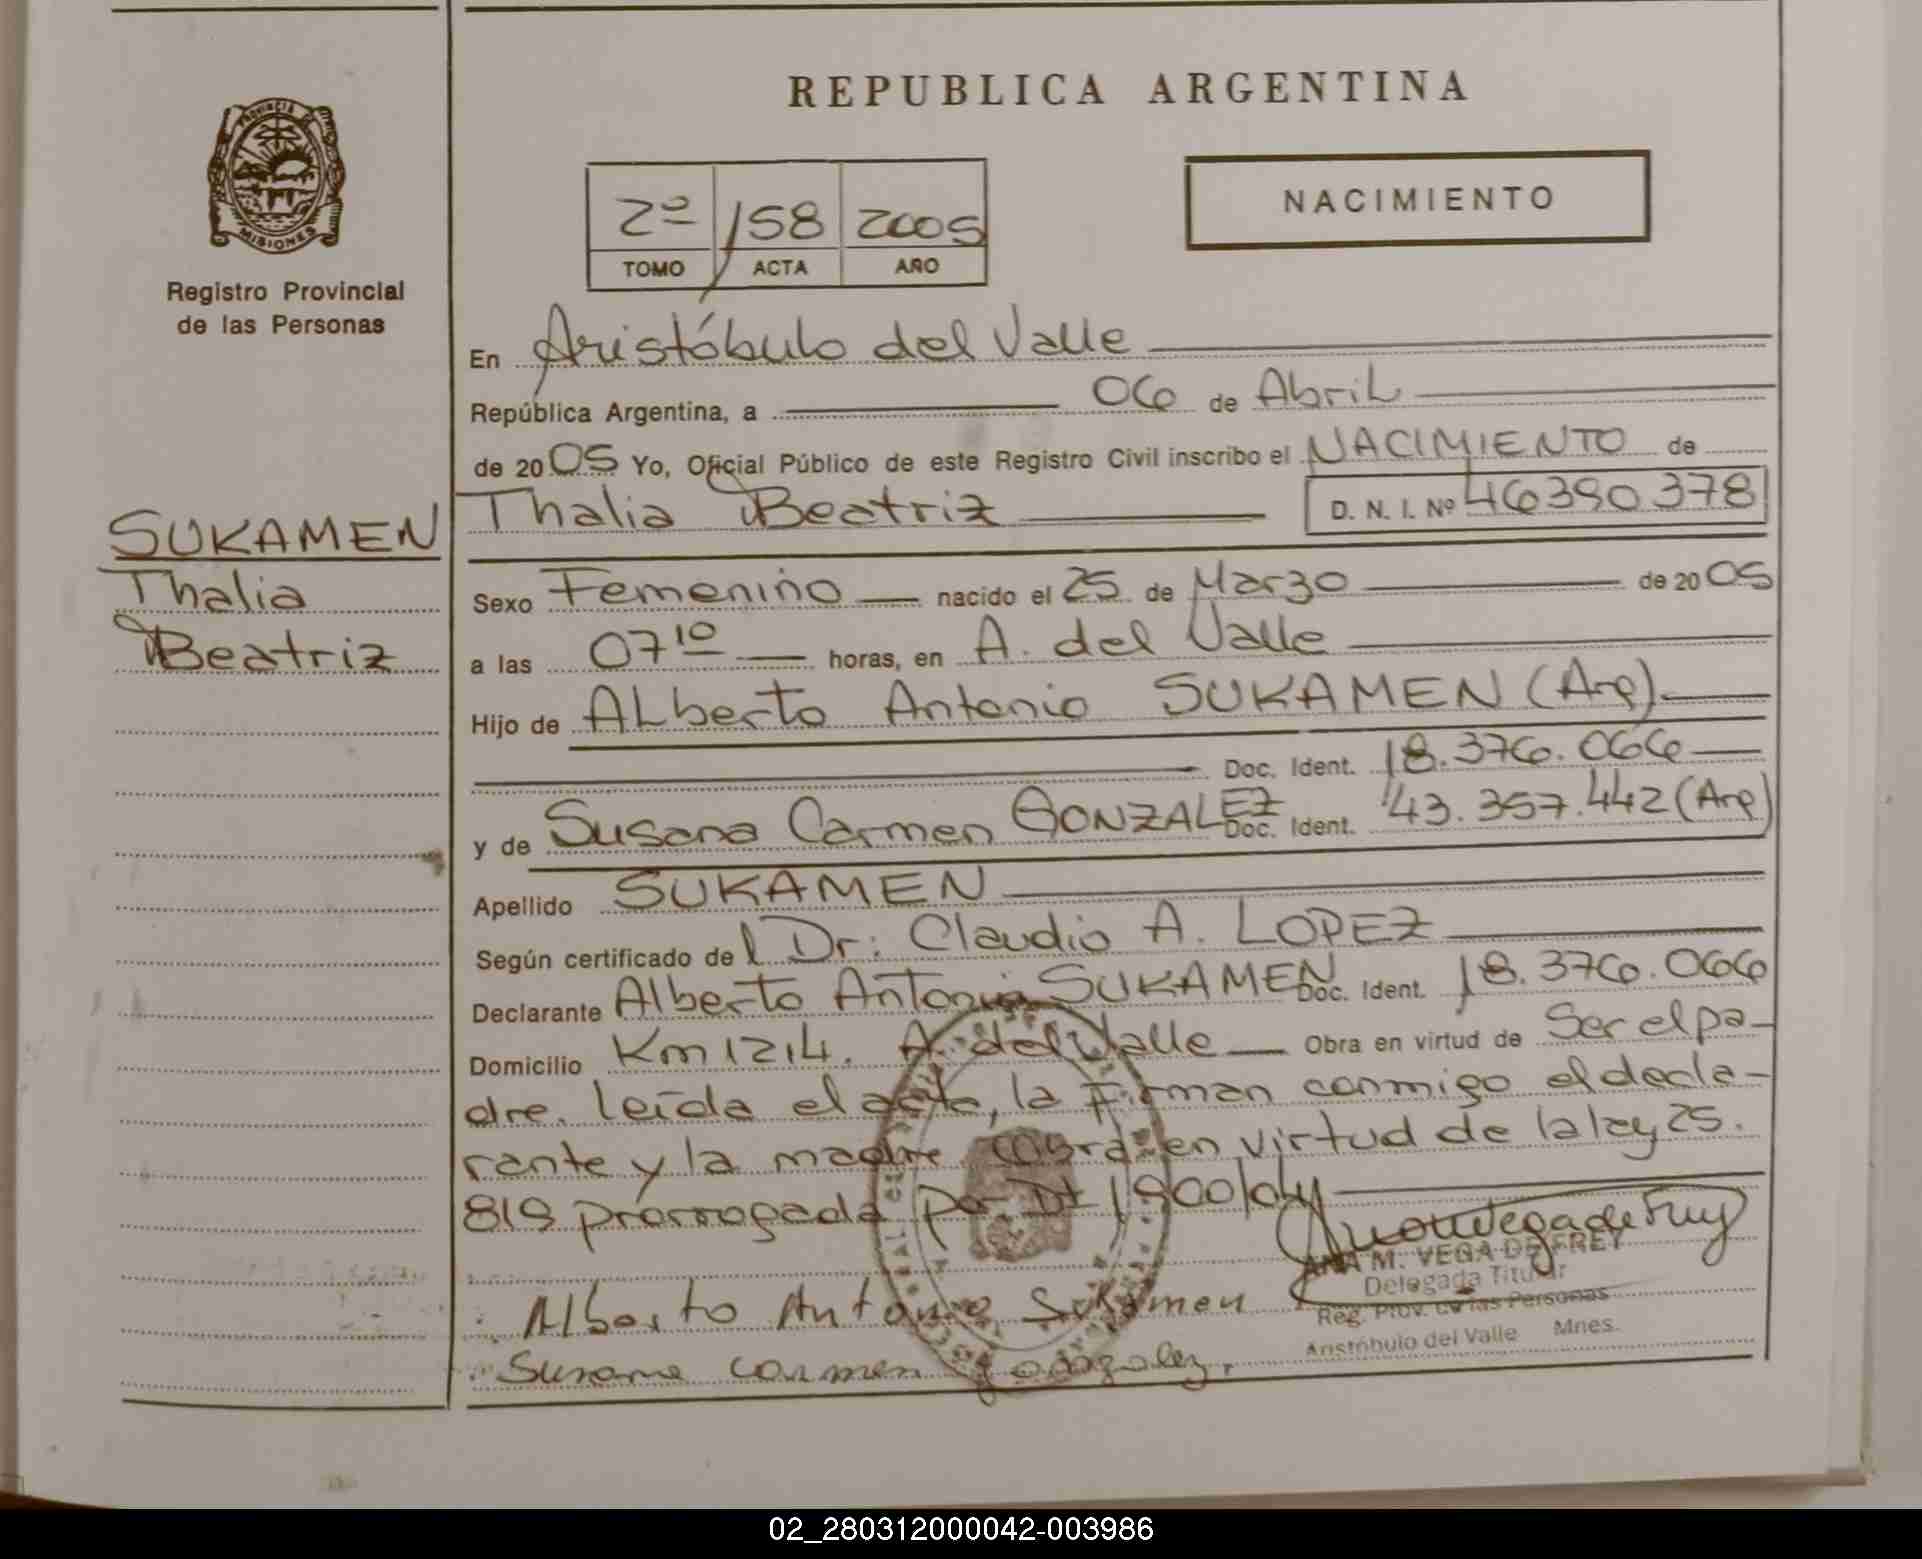 REPUBLICA ARGENTINA
PROVINCIA DE
MISIONES
Registro Provincial
de las Personas
2º 158 2005
TOMO ACTA AÑO
NACIMIENTO
En Aristóbulo del Valle
República Argentina, a 06 de Abril
de 2005 Yo, Oficial Público de este Registro Civil inscribo el NACIMIENTO de
Thalia Beatriz D. N. I. Nº 46390378
SUKAMEN
Thalia
Beatriz
Sexo Femenino nacido el 25 de Marzo de 2005
a las 07 10 horas, en A. del Valle
Hijo de ALberto Antonio SUKAMEN (Arg)
Doc. Ident. 18.376.066
y de Susana Carmen GONZALEZ Doc. Ident. 43.357.442 (Arg)
Apellido SUKAMEN
Según certificado del Dr: Claudio A. LOPEZ
Declarante Alberto Antonio SUKAMEN Doc. Ident. 18.376.066
Domicilio Km 1214. A. del Valle Obra en virtud de Ser el pa-
dre. leída el acta, la Firman conmigo el decla-
rante y la madre en virtud de la ley 25.
819 prorrogada por Dt 1900/04
ANA M. VEGA DE FREY
Delegada Titular
Reg. Prov. de las Personas
Aristóbulo del Valle Mnes.
Alberto Antonio Sukamen
Susana Carmen gonzalez.
02_280312000042-003986